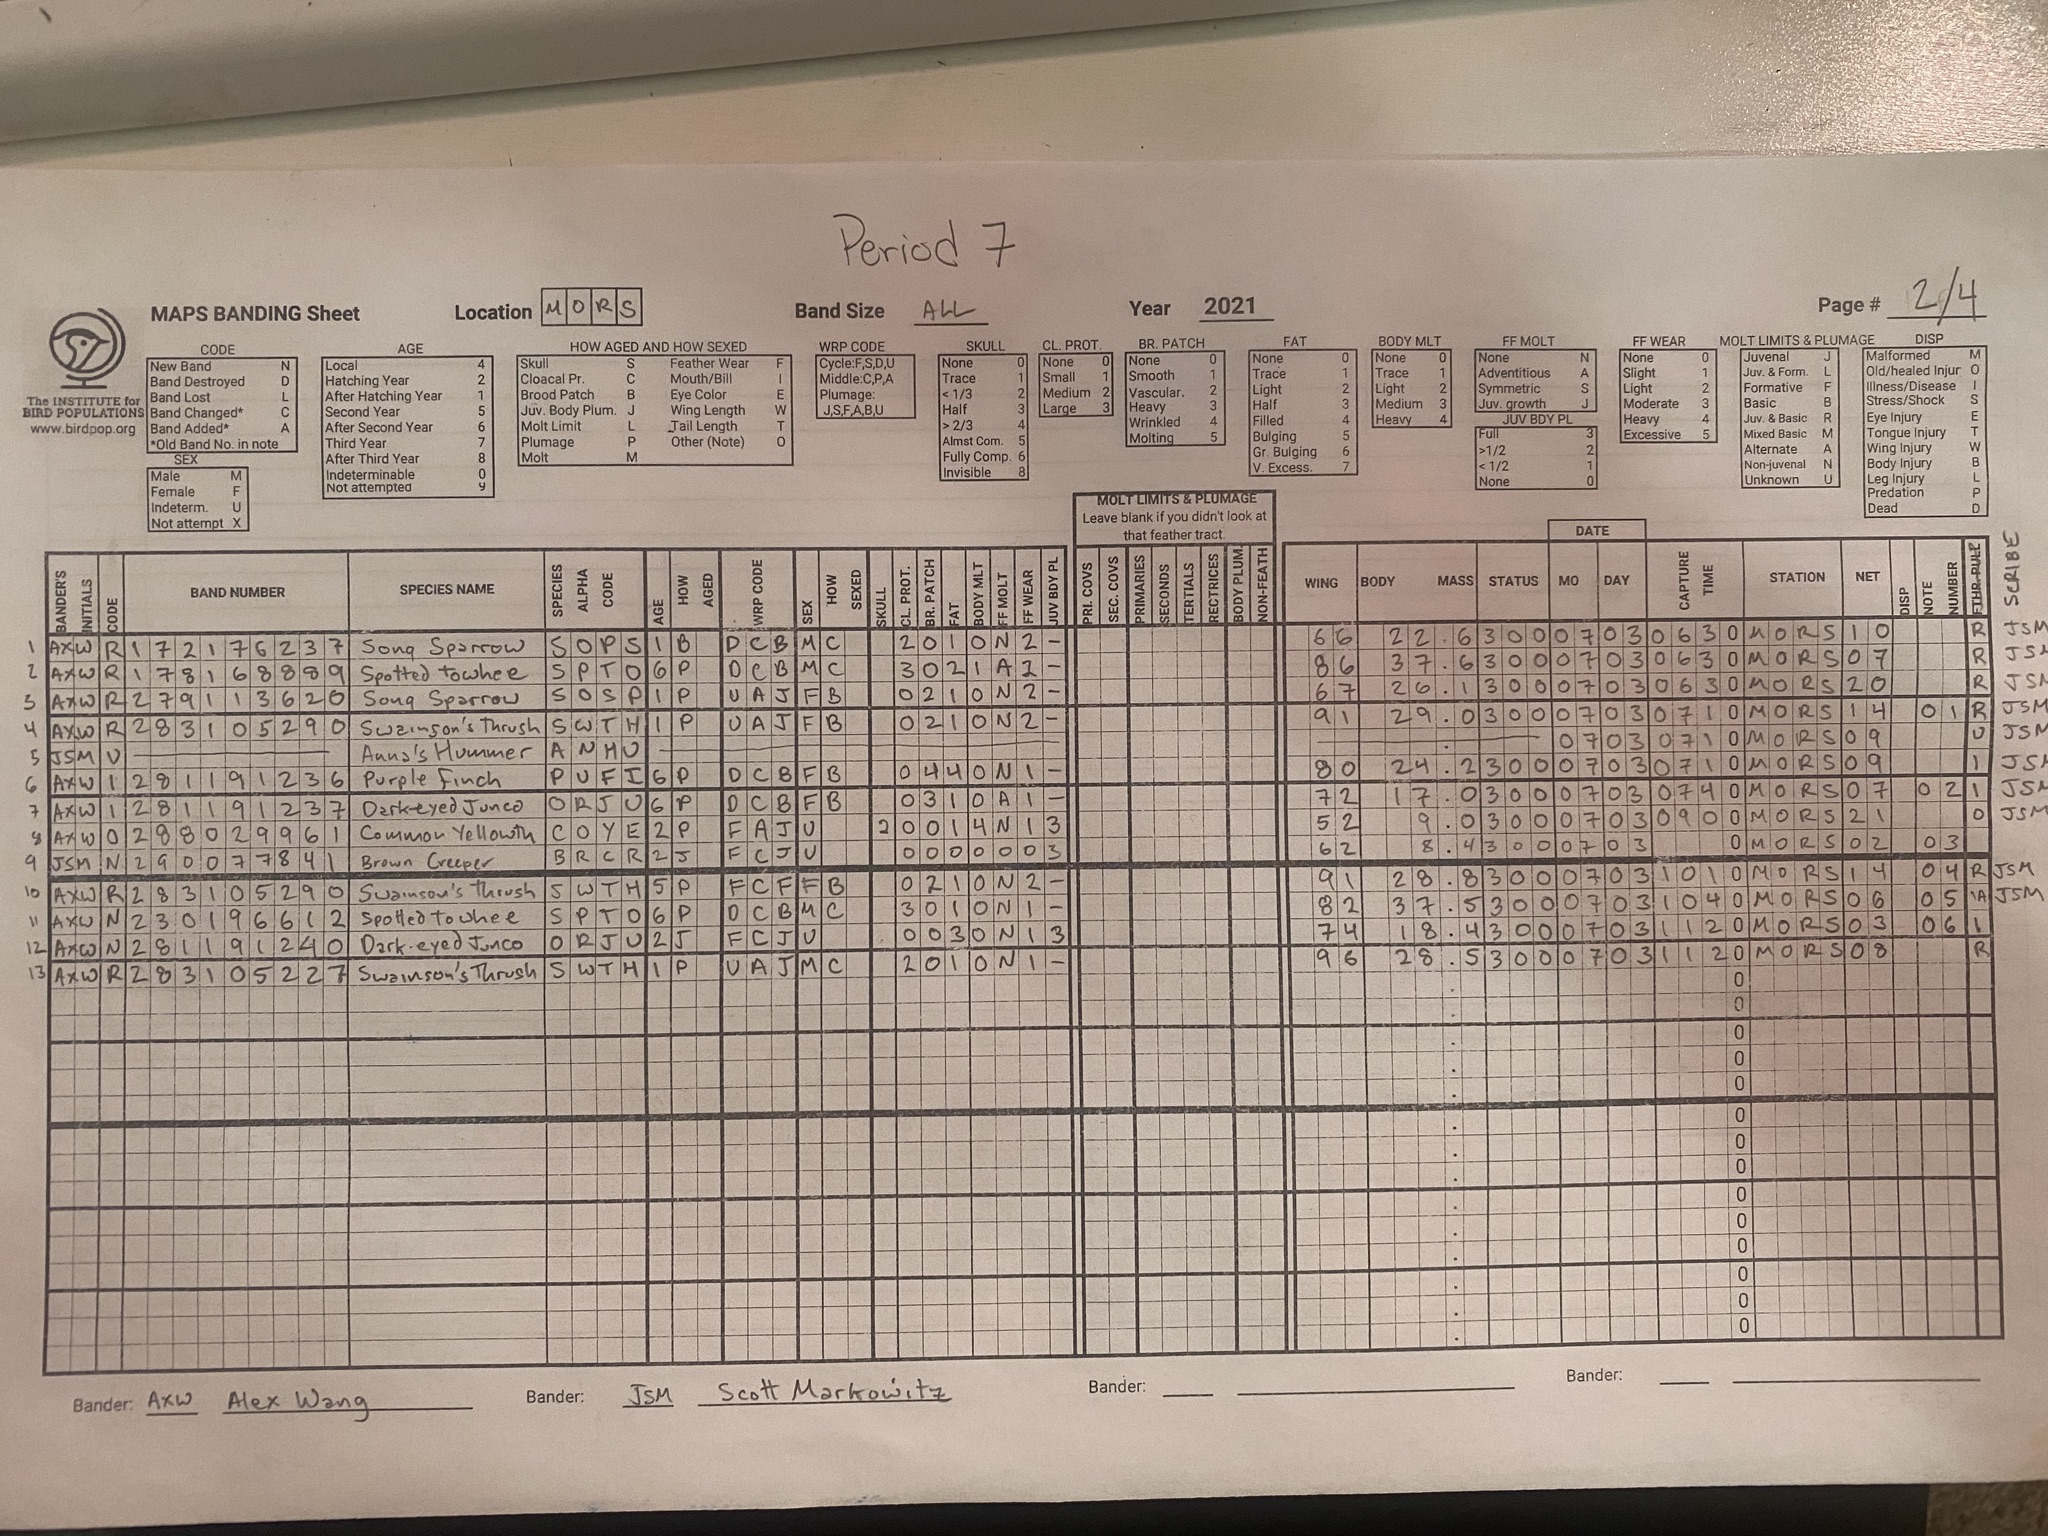 Period 7
MAPS BANDING Sheet Location MORS Band Size ALL Year 2021 Page # 2/4
The INSTITUTE for
BIRD POPULATIONS
www.birdpop.org
CODE
New Band N
Band Destroyed D
Band Lost L
Band Changed* C
Band Added* A
*Old Band No. in note
SEX
Male M
Female F
Indeterm. U
Not attempt X
AGE
Local 4
Hatching Year 2
After Hatching Year 1
Second Year 5
After Second Year 6
Third Year 7
After Third Year 8
Indeterminable 0
Not attempted 9
HOW AGED AND HOW SEXED
Skull S Feather Wear F
Cloacal Pr. C Mouth/Bill I
Brood Patch B Eye Color E
Juv. Body Plum. J Wing Length W
Molt Limit L Tail Length T
Plumage P Other (Note) O
Molt M
WRP CODE
Cycle:F,S,D,U
Middle:C,P,A
Plumage:
J,S,F,A,B,U
SKULL
None 0
Trace 1
< 1/3 2
Half 3
> 2/3 4
Almst Com. 5
Fully Comp. 6
Invisible 8
CL. PROT.
None 0
Small 1
Medium 2
Large 3
BR. PATCH
None 0
Smooth 1
Vascular. 2
Heavy 3
Wrinkled 4
Molting 5
FAT
None 0
Trace 1
Light 2
Half 3
Filled 4
Bulging 5
Gr. Bulging 6
V. Excess. 7
BODY MLT
None 0
Trace 1
Light 2
Medium 3
Heavy 4
FF MOLT
None N
Adventitious A
Symmetric S
Juv. growth J
JUV BDY PL
Full 3
>1/2 2
<1/2 1
None 0
FF WEAR
None 0
Slight 1
Light 2
Moderate 3
Heavy 4
Excessive 5
MOLT LIMITS & PLUMAGE
Juvenal J
Juv. & Form. L
Formative F
Basic B
Juv. & Basic R
Mixed Basic M
Alternate A
Non-juvenal N
Unknown U
DISP
Malformed M
Old/healed Injur O
Illness/Disease I
Stress/Shock S
Eye Injury E
Tongue Injury T
Wing Injury W
Body Injury B
Leg Injury L
Predation P
Dead D
MOLT LIMITS & PLUMAGE
Leave blank if you didn't look at
that feather tract
DATE
BANDER'S INITIALS CODE BAND NUMBER SPECIES NAME SPECIES ALPHA CODE AGE HOW AGED WRP CODE SEX HOW SEXED SKULL CL. PROT. BR. PATCH FAT BODY MLT FF MOLT FF WEAR JUV BDY PL PRI. COVS SEC. COVS PRIMARIES SECONDS TERTIALS RECTRICES BODY PLUM. NON-FEATH WING BODY MASS STATUS MO DAY CAPTURE TIME STATION NET DISP NOTE NUMBER FTHR. PULL SCRIBE
1 AXW R 172176237 Song Sparrow SOPS 1 B DCB M C 2 0 1 0 N 2 - 66 22.6 300 07 03 063 0 MORS 10 R JSM
2 AXW R 178168889 Spotted towhee SPTO 6 P DCB M C 3 0 2 1 A 2 - 86 37.6 300 07 03 063 0 MORS 07 R JSM
3 AXW R 279113620 Song Sparrow SOSP 1 P UAJ F B 0 2 1 0 N 2 - 67 26.1 300 07 03 063 0 MORS 20 R JSM
4 AXW R 283105290 Swainson's Thrush SWTH 1 P UAJ F B 0 2 1 0 N 2 - 91 29.0 300 07 03 071 0 MORS 14 01 R JSM
5 JSM U Anna's Hummer ANHU - . 07 03 071 0 MORS 09 U JSM
6 AXW 1 281191236 Purple Finch PUFI 6 P DCB F B 0 4 4 0 N 1 - 80 24.2 300 07 03 071 0 MORS 09 1 JSM
7 AXW 1 281191237 Dark-eyed Junco ORJU 6 P DCB F B 0 3 1 0 A 1 - 72 17.0 300 07 03 074 0 MORS 07 02 1 JSM
8 AXW 0 288029961 Common Yellowth COYE 2 P FAJ U 2 0 0 1 4 N 1 3 52 9.0 300 07 03 090 0 MORS 21 0 JSM
9 JSM N 290077841 Brown Creeper BRCR 2 J FCJ U 0 0 0 0 0 0 3 62 8.4 300 07 03 0 MORS 02 03
10 AXW R 283105290 Swainson's Thrush SWTH 5 P FCF F B 0 2 1 0 N 2 - 91 28.8 300 07 03 101 0 MORS 14 04 R JSM
11 AXW N 230196612 Spotted towhee SPTO 6 P DCB M C 3 0 1 0 N 1 - 82 37.5 300 07 03 104 0 MORS 06 05 A JSM
12 AXW N 281191240 Dark-eyed Junco ORJU 2 J FCJ U 0 0 3 0 N 1 3 74 18.4 300 07 03 112 0 MORS 03 06 1
13 AXW R 283105227 Swainson's Thrush SWTH 1 P UAJ M C 2 0 1 0 N 1 - 96 28.5 300 07 03 112 0 MORS 08 R
. 0
. 0
. 0
. 0
. 0
. 0
. 0
. 0
. 0
. 0
. 0
. 0
. 0
. 0
Bander: AXW Alex Wang Bander: JSM Scott Markowitz Bander: Bander: